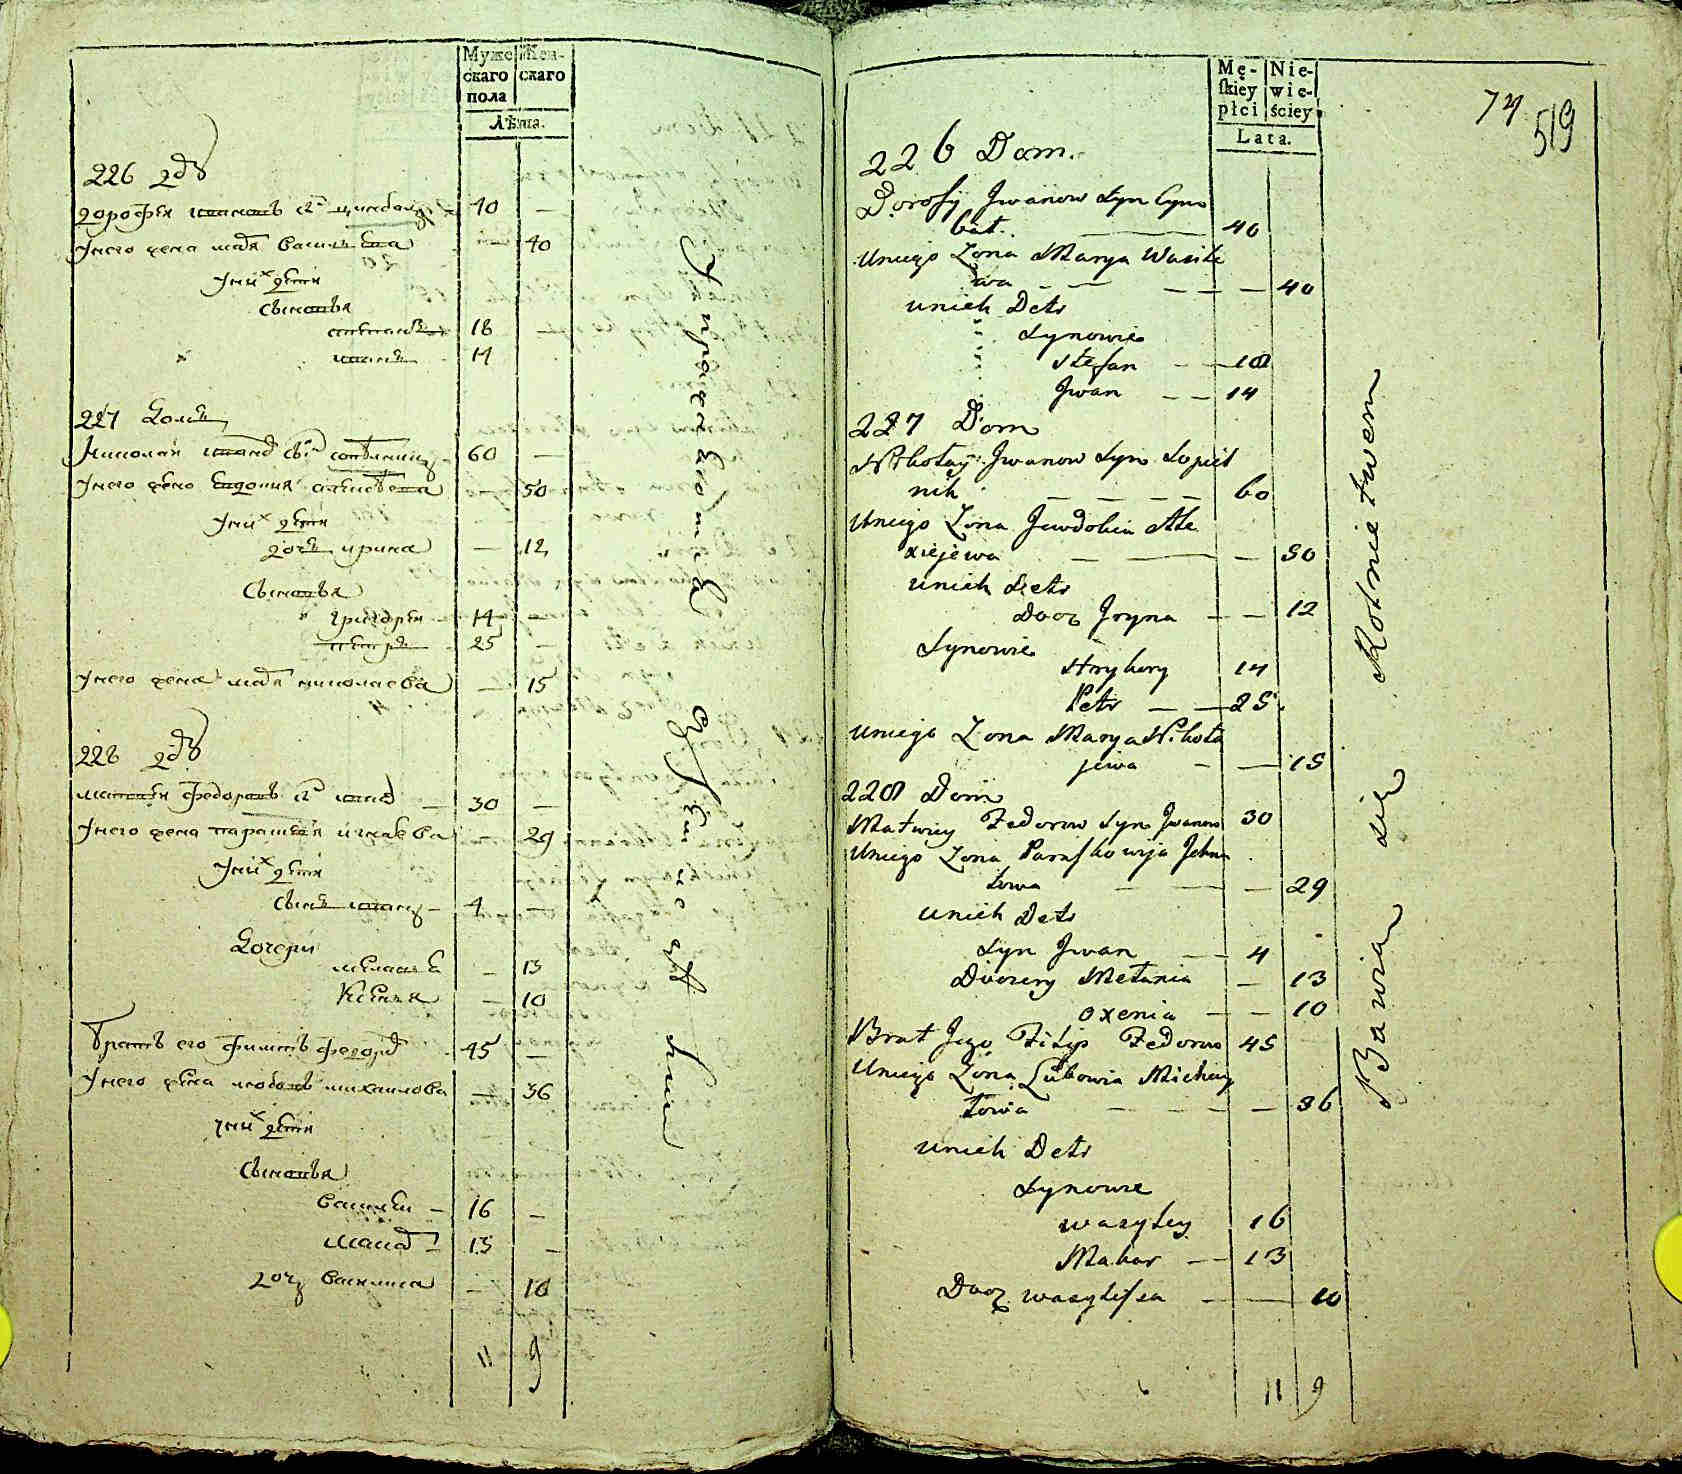 Муже-
скаго
пола
Жен-
скаго
Лѣта.
226 дв
Дорофей Ивановъ сн
40 —
У него жена Марья Васильева — 40
У них дети
Сыновья
Степанъ 18 —
Иванъ 14
227 Домъ
Николай Иванов сынъ 60 —
У него жена Евдокия Алексѣева 50
У них дети
дочь Ирина — 12
Сыновья
Григорей 14 —
Петръ 25 —
У него жена Марья Николаева — 15
228 дв
Матвей Федоровъ сн Иванов — 30 —
У него жена Парасковея Игнатева — 29
У них дети
Сынъ Иванъ — 4 —
Дочери
Мелания — 13
Ксенья — 10
Братъ его Филипъ Федоров 45 —
У него жена Любовь Михайлова — 36
У них дети
Сыновья
Василей — 16 —
Макар — 13 —
дочь Василиса — 10
11 9
Mę-
skiey
płci
Nie-
wie-
ściey
Lata.
74
519
226 Dom.
Dorofiy Jwanow Syn Cym
bat. — 40
Uniego Zona Marya Wasile
wa — — — — 40
unich Deti
Synowie
Stefan — — 18
Jwan — — 14
227 Dom
Nikołay Jwanow Syn Sopiel
nik — — — — 60
Uniego Zona Jewdokia Ale
xiejewa — — — 50
unich Deti
Docz Jryna — — 12
Synowie
Hryhory 14
Petr — — 25
uniego Zona Marya Nikoła
jewa — — 15
228 Dom
Matwiey Fedorow Syn Jwanow 30
Uniego Zona Paraskowija Jehna
towa — — — 29
Unich Deti
Syn Jwan — — 4
Doczery Mełania — 13
oxenia — — 10
Brat Jego Filip Fedorow 45
Uniego Zona Lubowia Michay
łowa — — — — 36
unich Deti
Synowie
wasyley 16
Makar — — 13
Docz wasylisa — — 10
11 9
Bawian się Rolnictwem